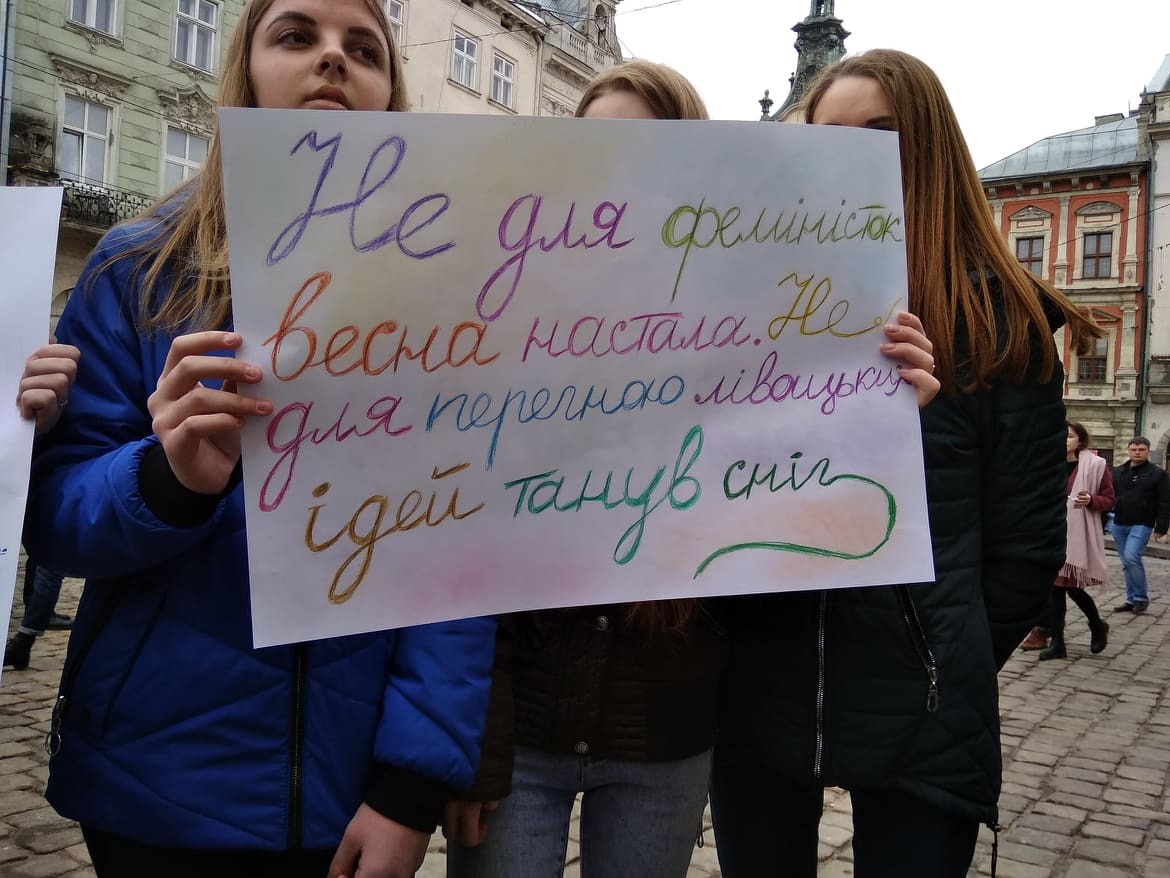 Не для феміністок
весна настала. Не
для перегною лівацьких
ідей танув сніг